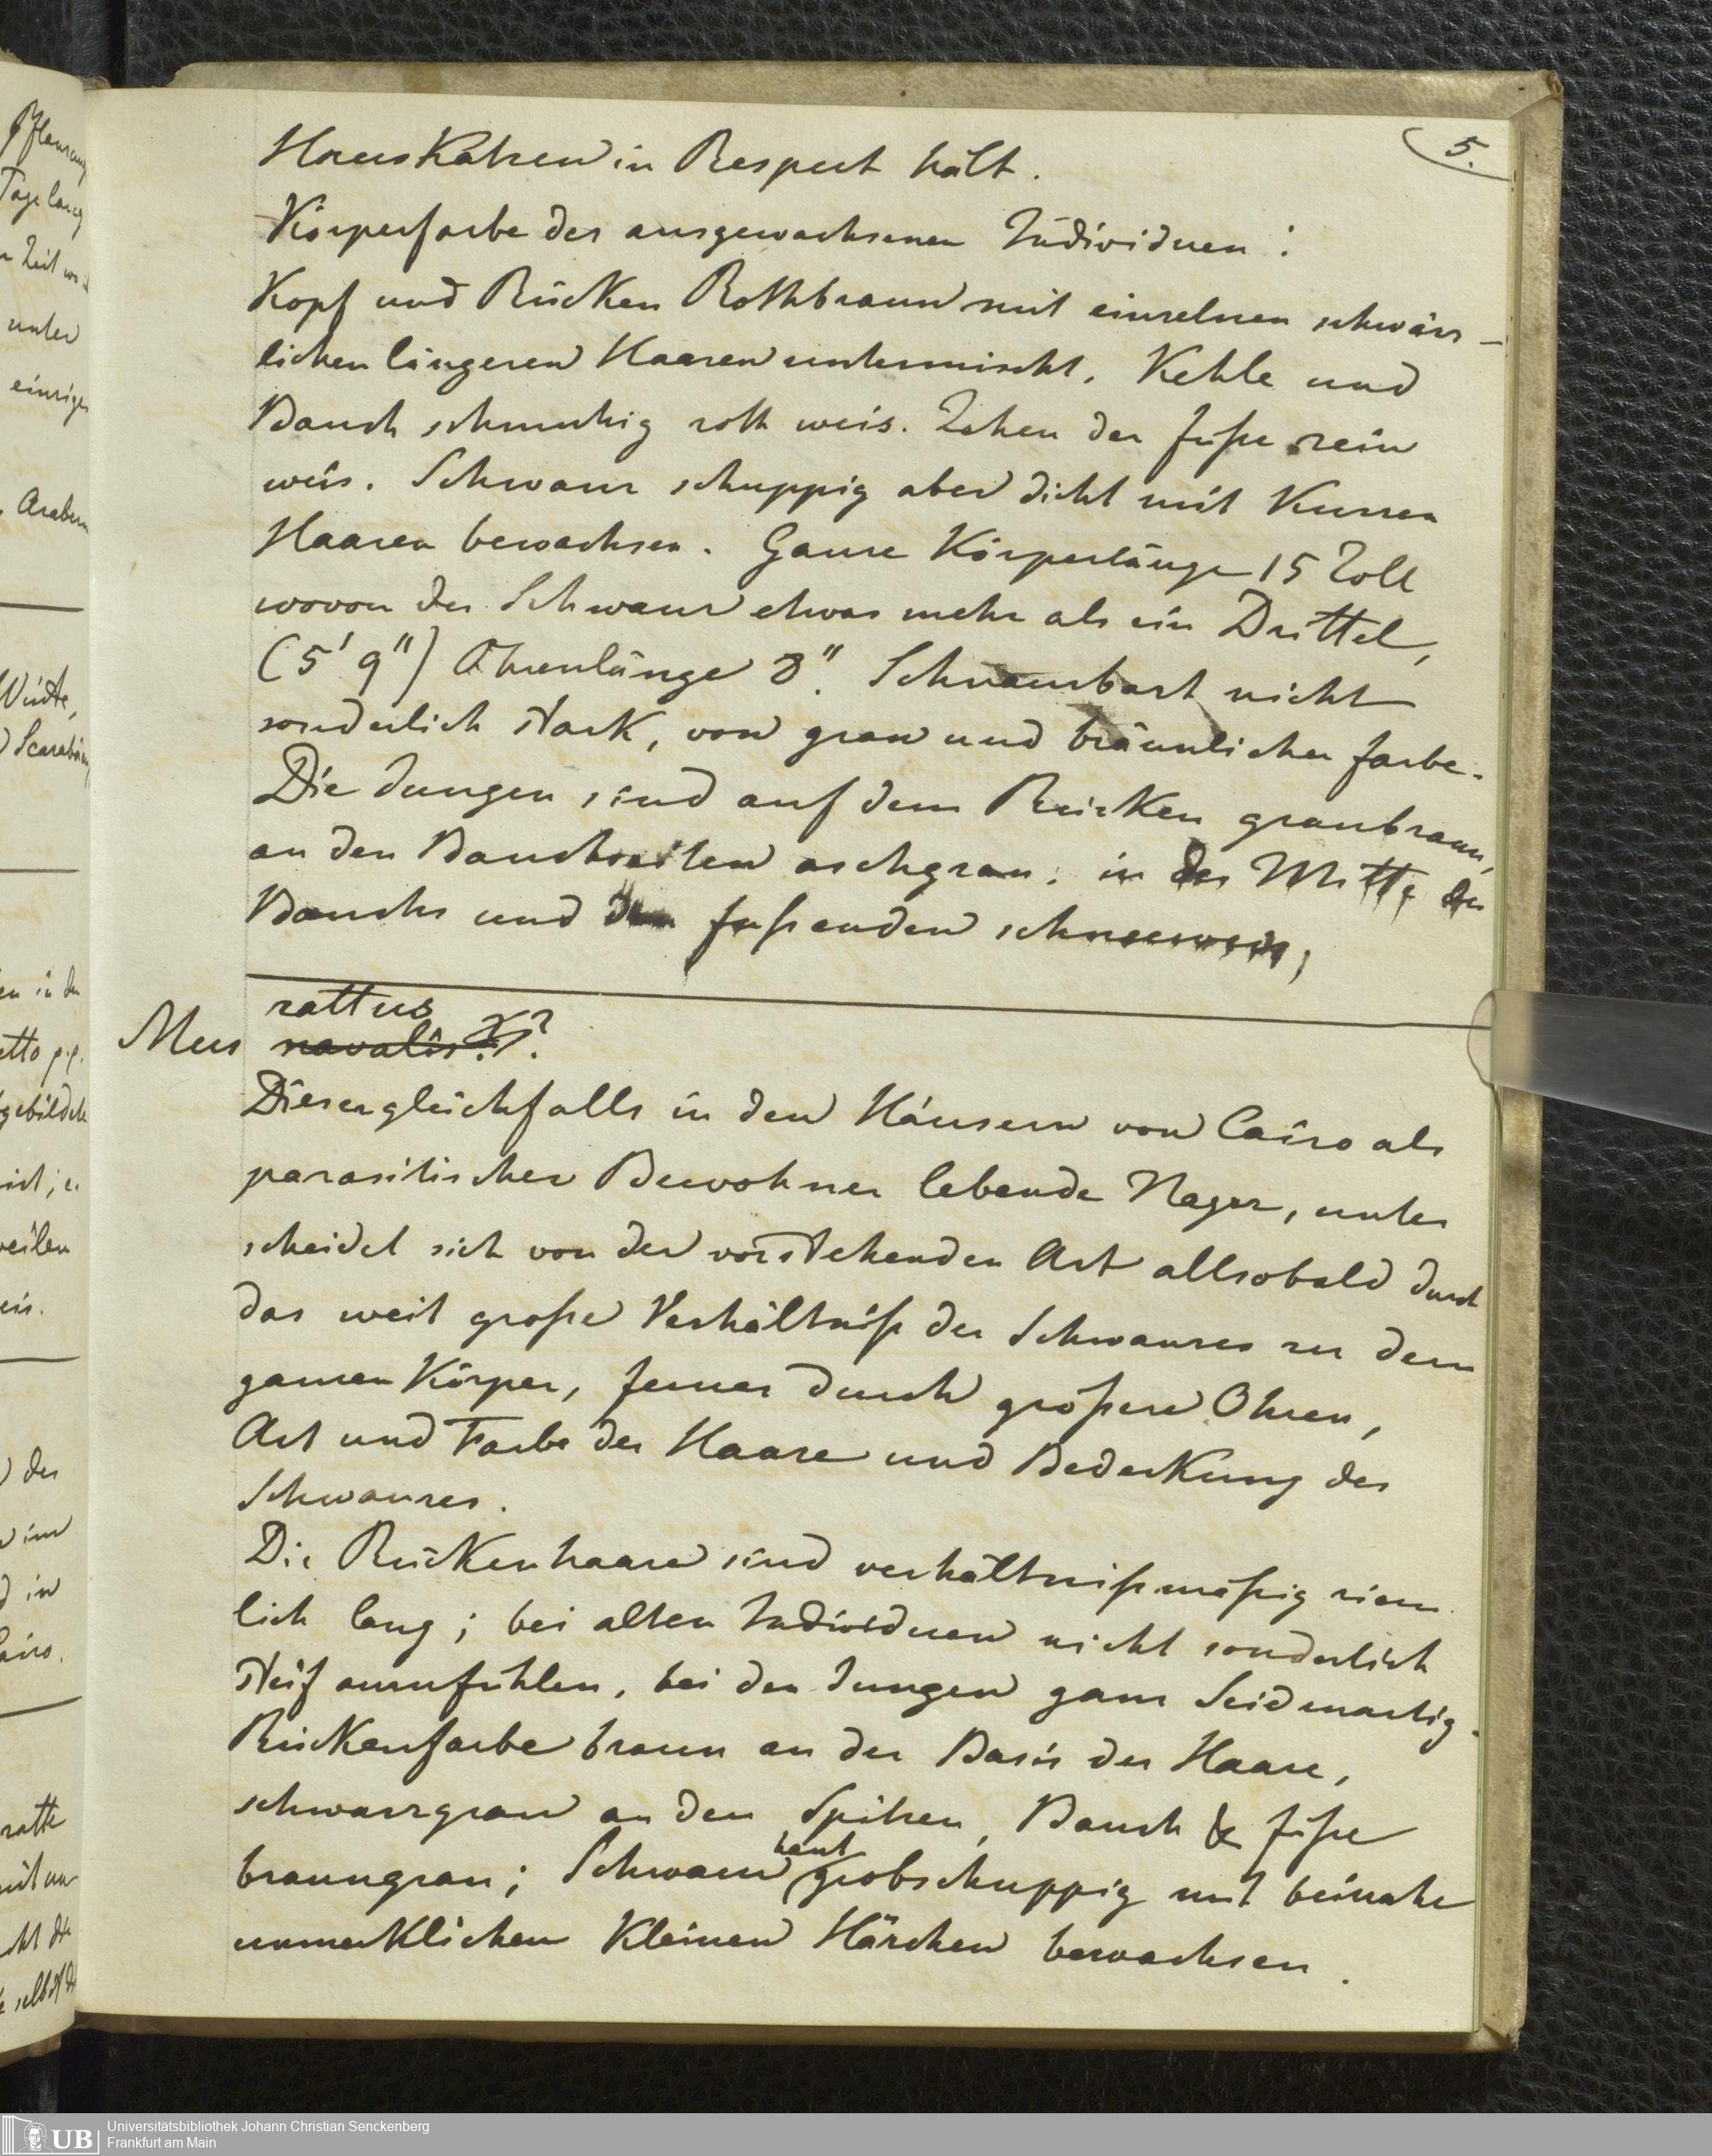 5.
HausKatzen in Respect hält.
Körperfarbe der ausgewachsenen Individuen:
Kopf und RücKen Rothbraun mit einzelnen schwärz-
lichen längeren Haaren untermischt. Kehle und
Bauch schmutzig roth weis. Zehen der füße rein
weis. Schwanz schuppig aber dicht mit Kurzen
Haaren bewachsen. Ganze Körperlänge 15 Zoll
wovon der Schwanz etwas mehr als ein Drittel,
(5' 9") Ohrenlänge 8". Schnauzbart nicht
sonderlich starK, von grau und bräunlicher farbe.
Die Jungen sind auf dem RücKen graubraun,
an den Bauchseiten aschgrau, in der Mitte des
Bauchs und den fußenden schneeweis,
rattus
Mus navalis??
Dieser gleichfalls in den Häusern von Cairo als
parasitischer Bewohner lebende Nager, unter
scheidet sich von der vorstehenden Art allsobald durch
das weit große Verhältniß des Schwanzes zu dem
ganzen Körper, ferner durch größere Ohren,
Art und Farbe der Haare und BedecKung des
Schwanzes.
Die RückenKhaare sind verhältnißmäßig ziem
lich lang; bei alten Individuen nicht sonderlich
steif anzufühlen, bei den Jungen ganz Seidenartig.
RücKenfarbe braun an der Basis der Haare,
schwarzgrau an den Spitzen, Bauch & füße
haut
braungrau; Schwanz grobschuppig mit beinahe
unmerKlichen Kleinen Härchen bewachsen.
Universitätsbibliothek Johann Christian Senckenberg
Frankfurt am Main
UB